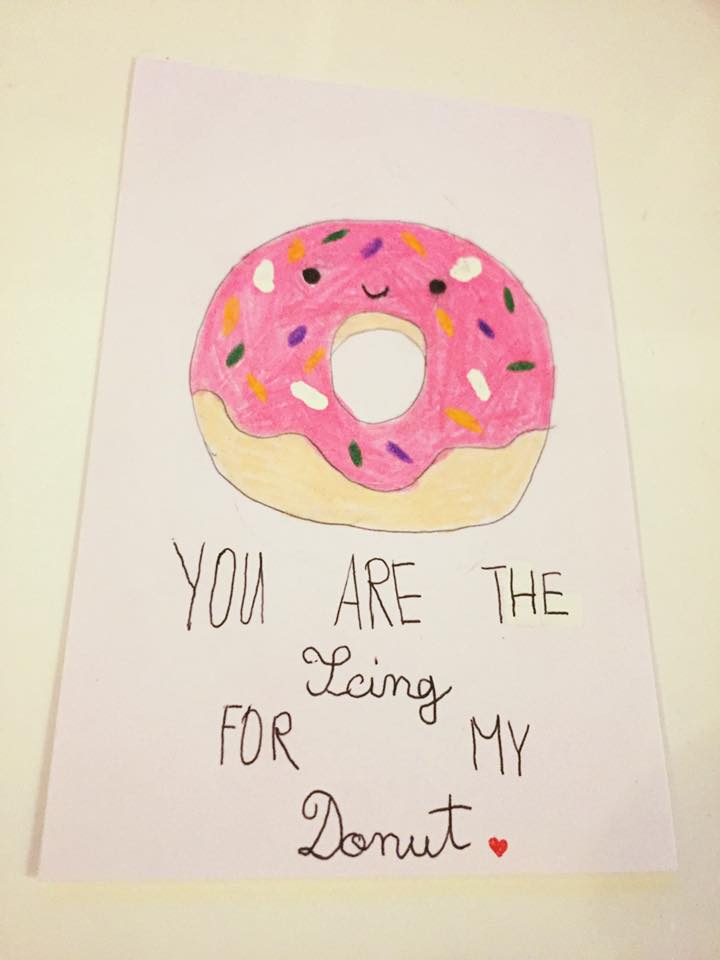 YOU ARE THE
Icing
FOR MY
Donut.